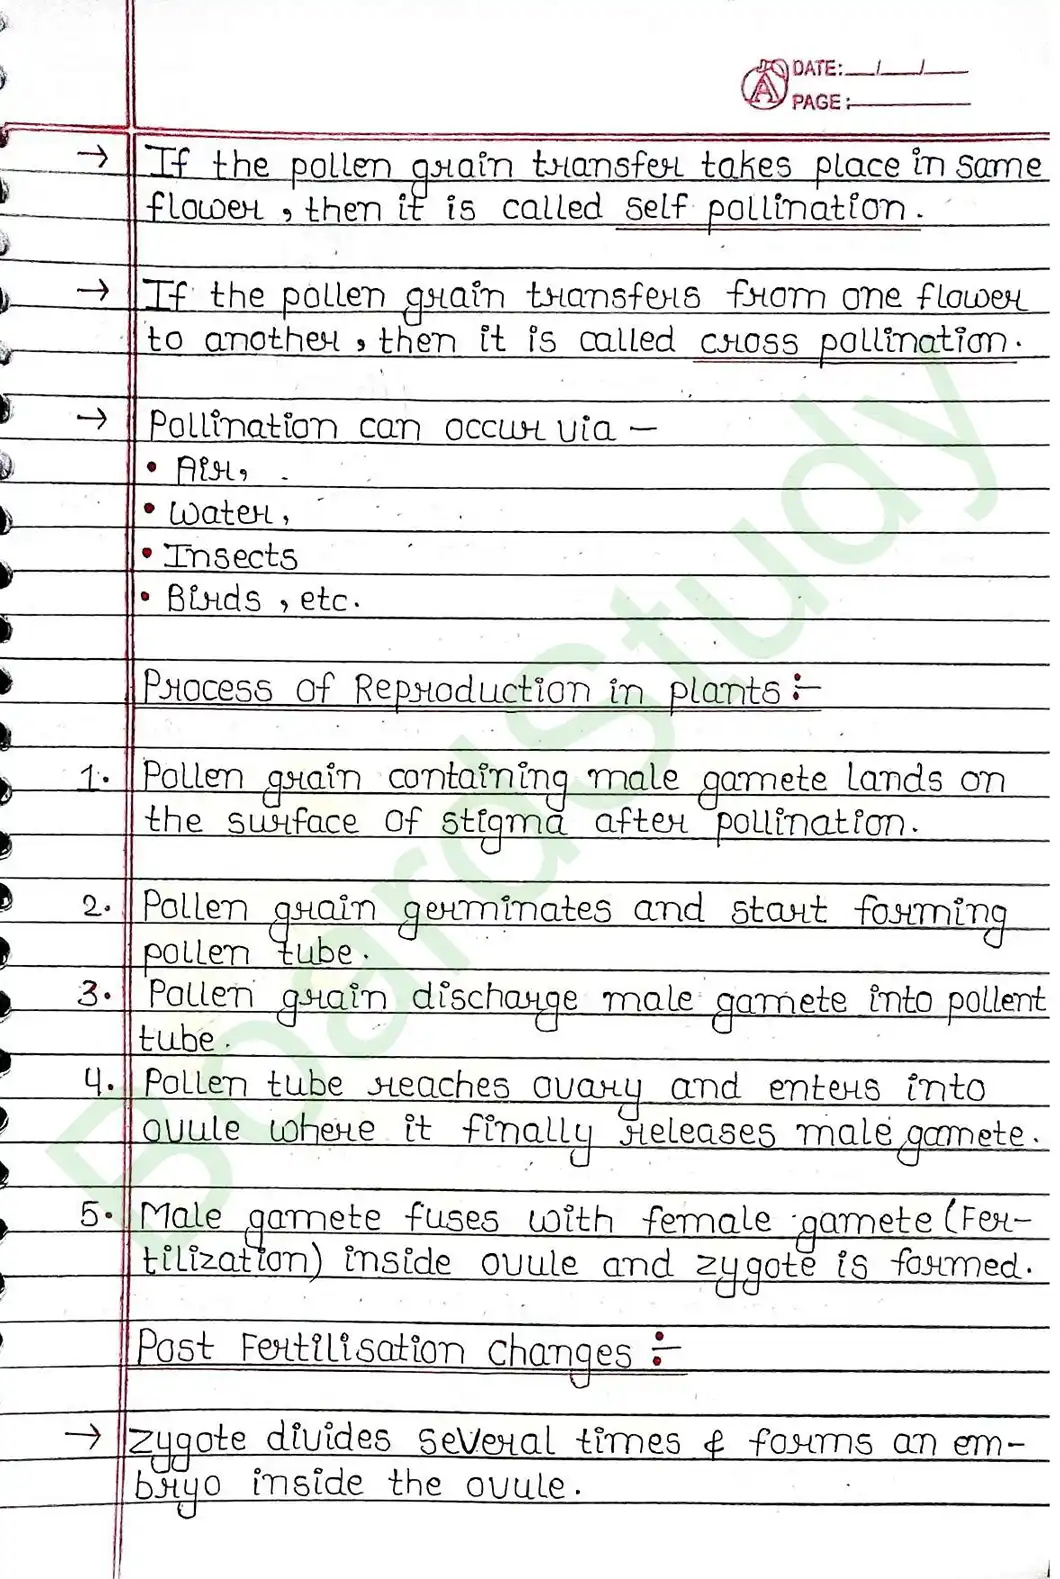 DATE: __/__/__
PAGE:
→ If the pollen grain transfer takes place in same
flower, then it is called self pollination.
→ If the pollen grain transfers from one flower
to another, then it is called cross pollination.
→ Pollination can occur via –
• Air,
• Water,
• Insects
• Birds, etc.
Process of Reproduction in plants :–
1. Pollen grain containing male gamete lands on
the surface of stigma after pollination.
2. Pollen grain germinates and start forming
pollen tube.
3. Pollen grain discharge male gamete into pollent
tube.
4. Pollen tube reaches ovary and enters into
ovule where it finally releases male gamete.
5. Male gamete fuses with female gamete (Fer-
tilization) inside ovule and zygote is formed.
Post Fertilisation changes :–
→ zygote divides several times & forms an em-
bryo inside the ovule.
BoardStudy